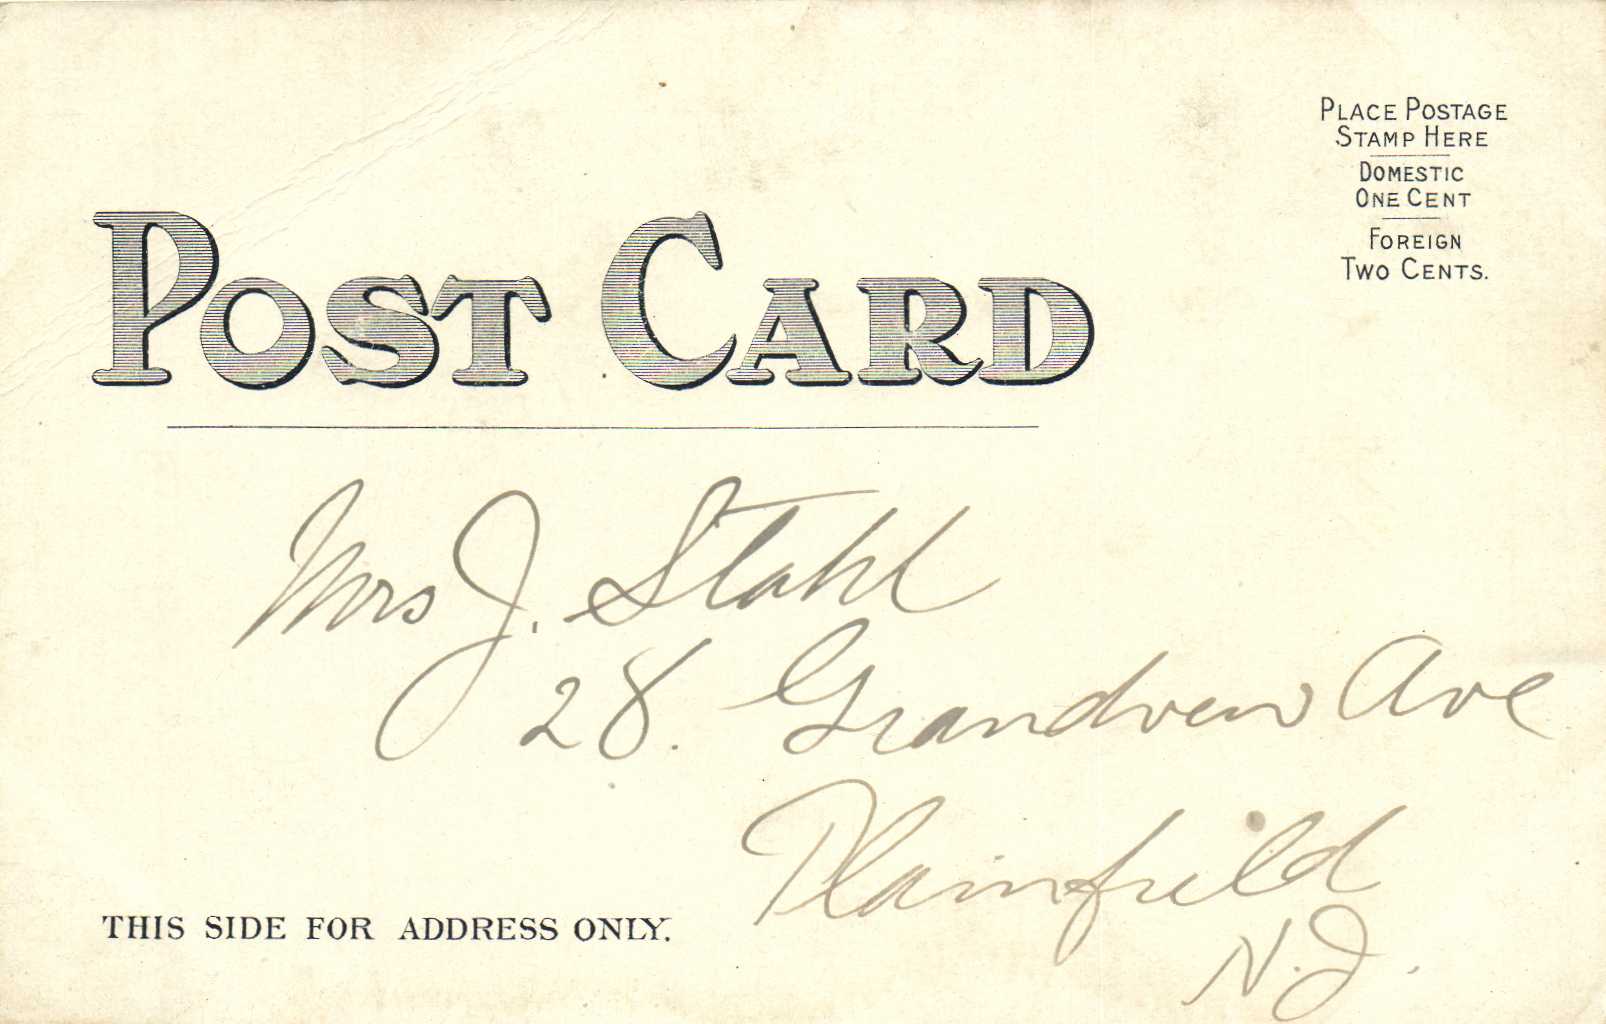 PLACE POSTAGE
STAMP HERE
DOMESTIC
ONE CENT
FOREIGN
TWO CENTS.
POST CARD
Mrs J. Stahl
28. Grandview Ave
Plainfield
N.J.
THIS SIDE FOR ADDRESS ONLY.